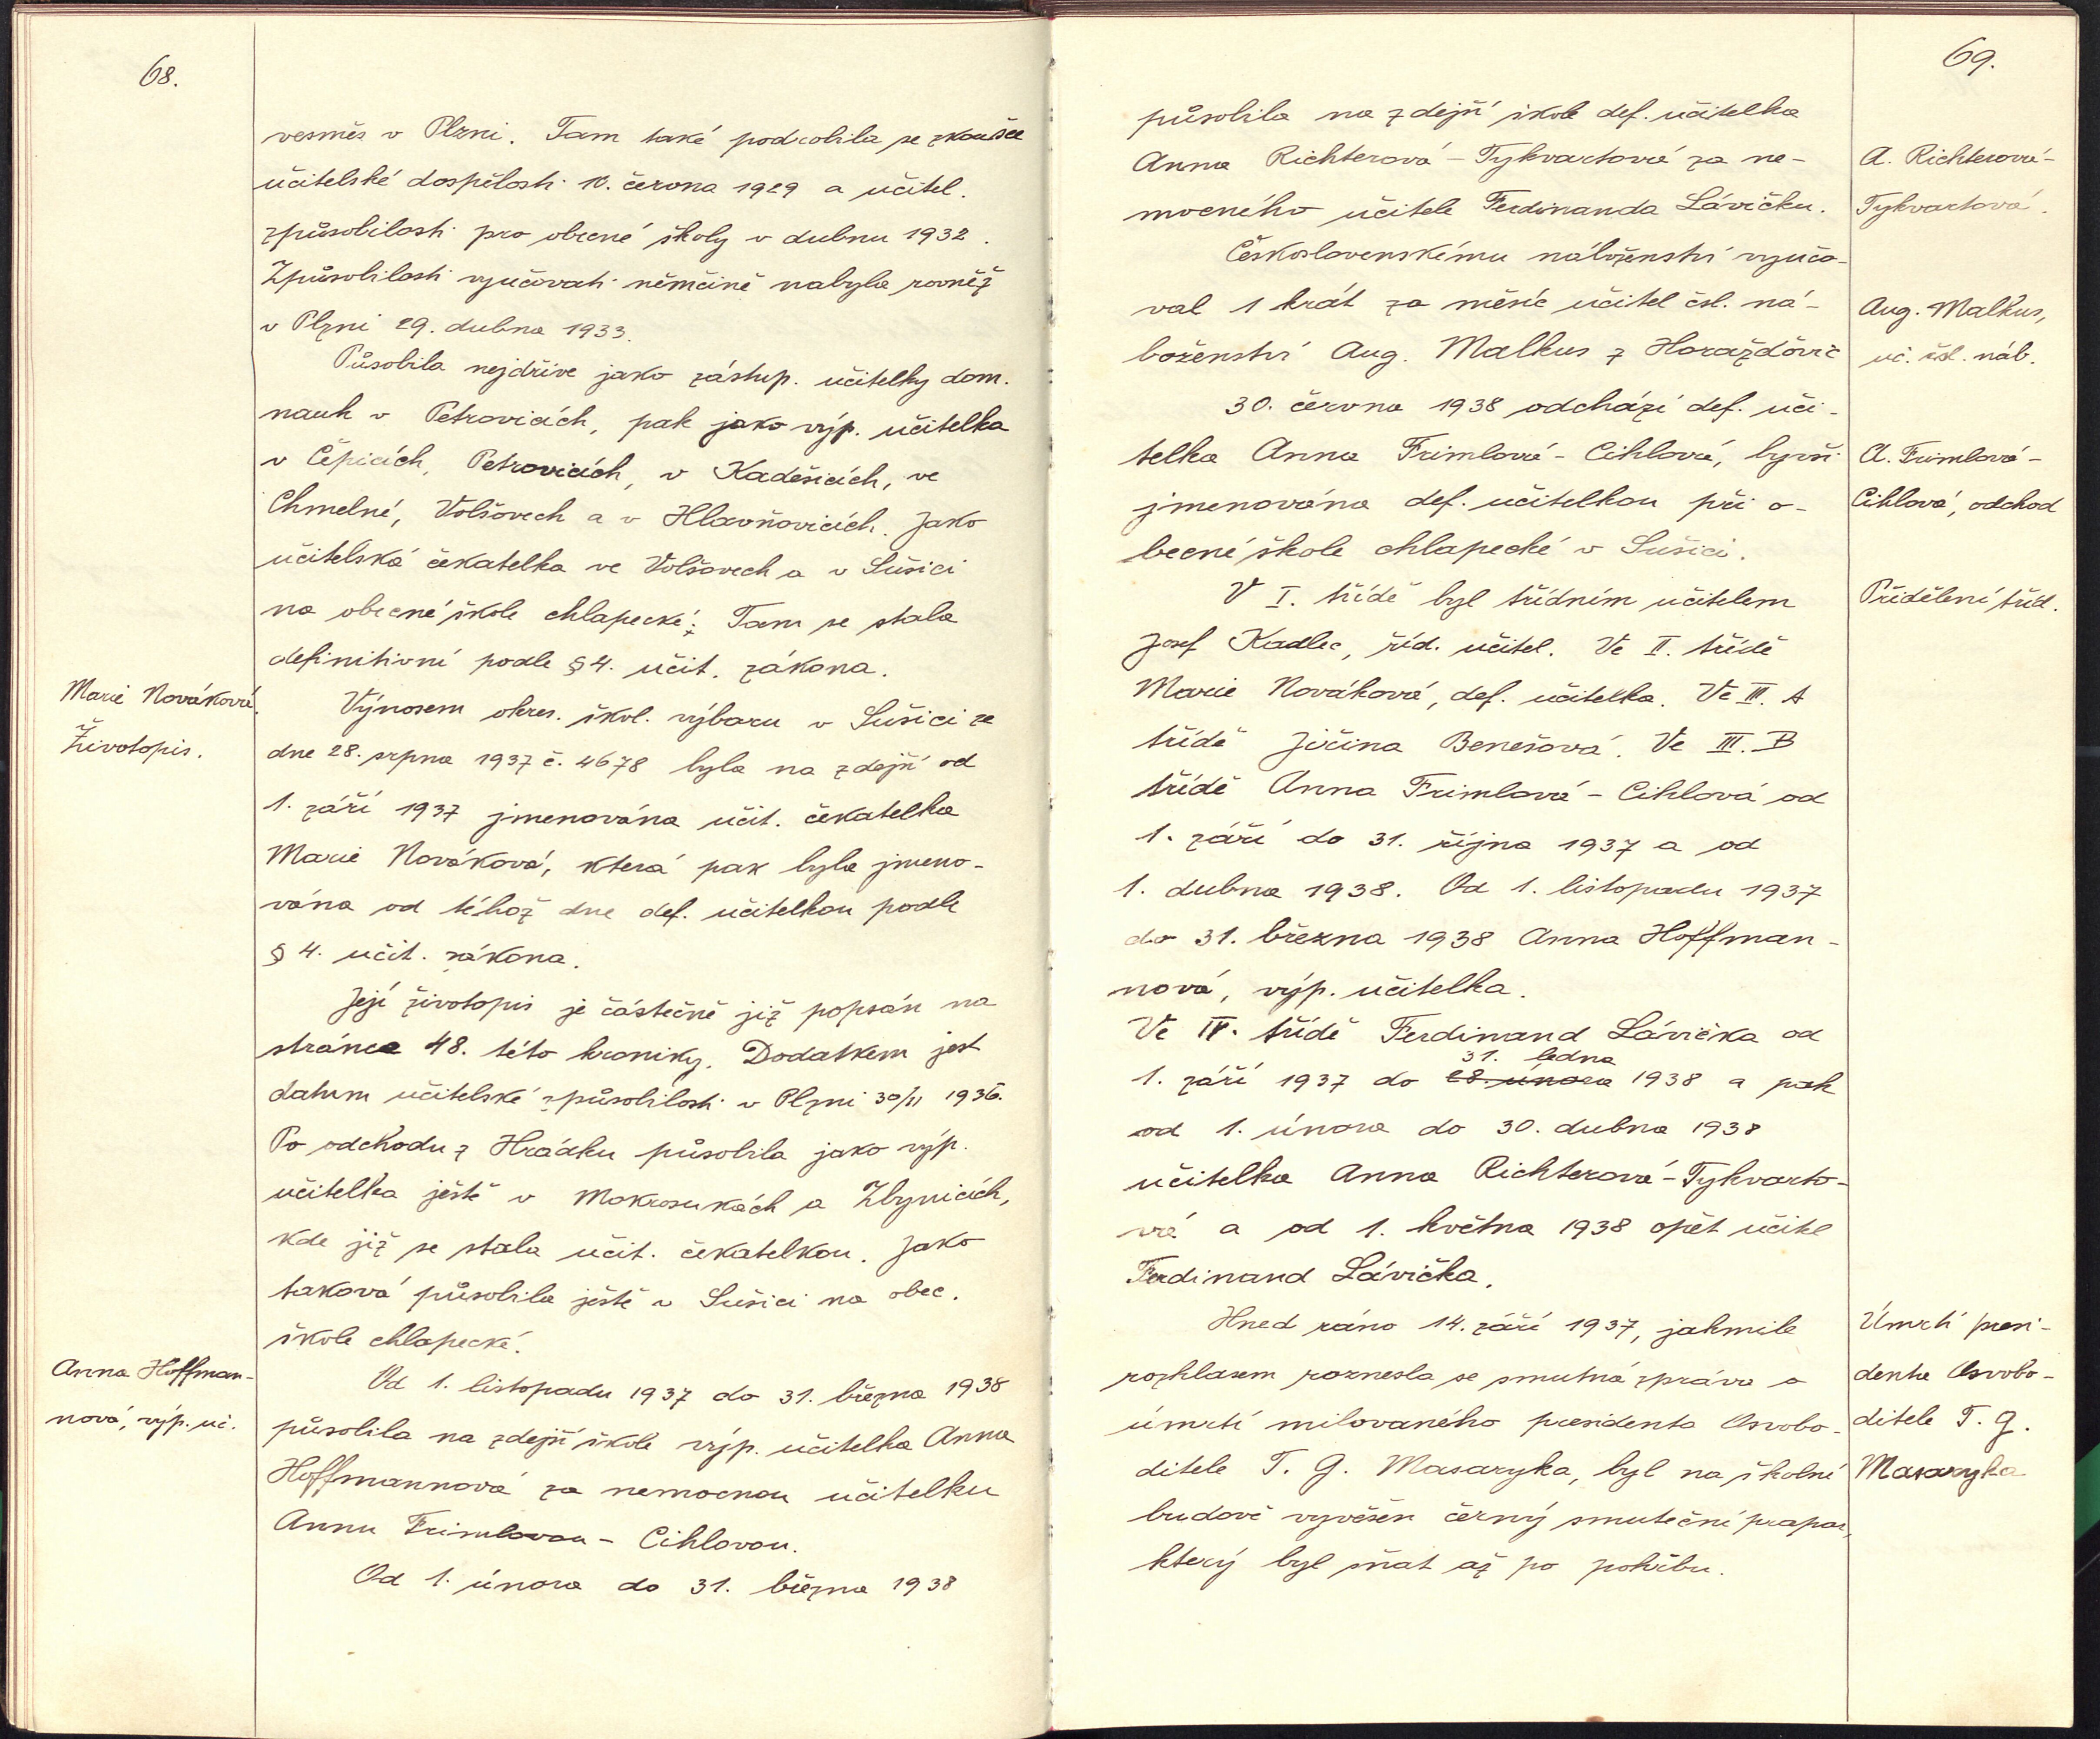 68.
vesměs v Plzni. Tam také podrobila se zkoušce
učitelské dospělosti 10. června 1929 a učitel.
způsobilosti pro obecné školy v dubnu 1932.
Způsobilosti vyučovati němčině nabyla rovněž
v Plzni 29. dubna 1933.
Působila nejdříve jako zástup. učitelky dom.
nauk v Petrovicích, pak jako výp. učitelka
v Čepicích, Petrovicích, v Kadešicích, ve
Chmelné, Volšovech a v Hlavňovicích. Jako
učitelská čekatelka ve Volšovech a v Sušici
na obecné škole chlapecké; Tam se stala
definitivní podle § 4. učit. zákona.
Marie Nováková.
Životopis.
Výnosem okres. škol. výboru v Sušici ze
dne 28. srpna 1937 č. 4678 byla na zdejší od
1. září 1937 jmenována učit. čekatelka
Marie Nováková, která pak byla jmeno-
vána od téhož dne def. učitelkou podle
§ 4. učit. zákona.
Její životopis je částečně již popsán na
stránce 48. této kroniky. Dodatkem jest
datum učitelské způsobilosti v Plzni 30/11 1936.
Po odchodu z Hrádku působila jako výp.
učitelka ještě v Mokrosukách a Zbynicích,
kde již se stala učit. čekatelkou. Jako
taková působila ještě v Sušici na obec.
škole chlapecké.
Anna Hoffman-
nová, výp. uč.
Od 1. listopadu 1937 do 31. března 1938
působila na zdejší škole výp. učitelka Anna
Hoffmannová za nemocnou učitelku
Annu Frimlovou - Cihlovou.
Od 1. února do 31. března 1938
69.
působila na zdejší škole def. učitelka
Anna Richterová - Tykvartová za ne-
mocného učitele Ferdinanda Lávičku.
A. Richterová-
Tykvartová.
Československému náboženství vyučo-
val 1 krát za měsíc učitel čsl. ná-
boženství Aug. Malkus z Horažďovic
Aug. Malkus,
uč. čsl. náb.
30. června 1938 odchází def. uči-
telka Anna Frimlová - Cihlová, byvši
jmenována def. učitelkou při o-
becné škole chlapecké v Sušici.
A. Frimlová -
Cihlová, odchod
V I. třídě byl třídním učitelem
Přidělení tříd.
Josef Kadlec, říd. učitel. Ve II. třídě
Marie Nováková, def. učitelka. Ve III. A
třídě Jiřina Benešová. Ve III. B
třídě Anna Frimlová - Cihlová od
1. září do 31. října 1937 a od
1. dubna 1938. Od 1. listopadu 1937
do 31. března 1938 Anna Hoffman-
nová, výp. učitelka.
Ve IV. třídě Ferdinand Lávička od
31. ledna
1. září 1937 do 28. února 1938 a pak
od 1. února do 30. dubna 1938
učitelka Anna Richterová - Tykvarto-
vá a od 1. května 1938 opět učitel
Ferdinand Lávička.
Hned ráno 14. září 1937, jakmile
rozhlasem roznesla se smutná zpráva o
úmrtí milovaného presidenta Osvobo-
ditele T. G. Masaryka, byl na školní
budově vyvěšen černý smuteční prapor,
který byl sňat až po pohřbu.
Úmrtí presi-
denta Osvobo-
ditele T. G.
Masaryka